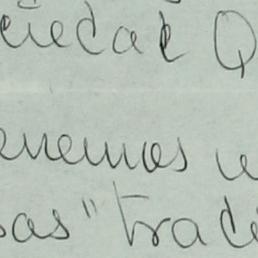 ciedad Q
enemos u
sas "trad